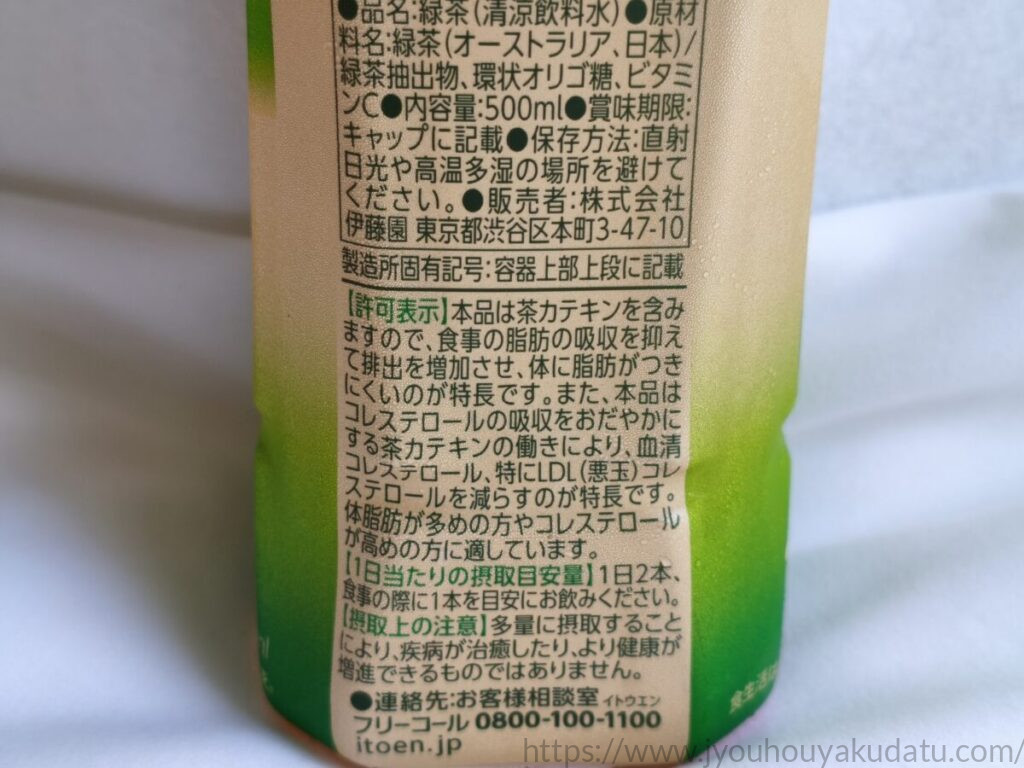 ●品名:緑茶(清涼飲料水)●原材
料名:緑茶(オーストラリア、日本)/
緑茶抽出物、環状オリゴ糖、ビタミ
ンC●内容量:500ml●賞味期限:
キャップに記載●保存方法:直射
日光や高温多湿の場所を避けて
ください。●販売者:株式会社
伊藤園 東京都渋谷区本町3-47-10
製造所固有記号:容器上部上段に記載
【許可表示】本品は茶カテキンを含み
ますので、食事の脂肪の吸収を抑え
て排出を増加させ、体に脂肪がつき
にくいのが特長です。また、本品は
コレステロールの吸収をおだやかに
する茶カテキンの働きにより、血清
コレステロール、特にLDL(悪玉)コレ
ステロールを減らすのが特長です。
体脂肪が多めの方やコレステロール
が高めの方に適しています。
【1日当たりの摂取目安量】1日2本、
食事の際に1本を目安にお飲みください。
【摂取上の注意】多量に摂取すること
により、疾病が治癒したり、より健康が
増進できるものではありません。
●連絡先:お客様相談室 イトウエン
フリーコール 0800-100-1100
itoen.jp
食生活は
https://www.jyouhouyakudatu.com/